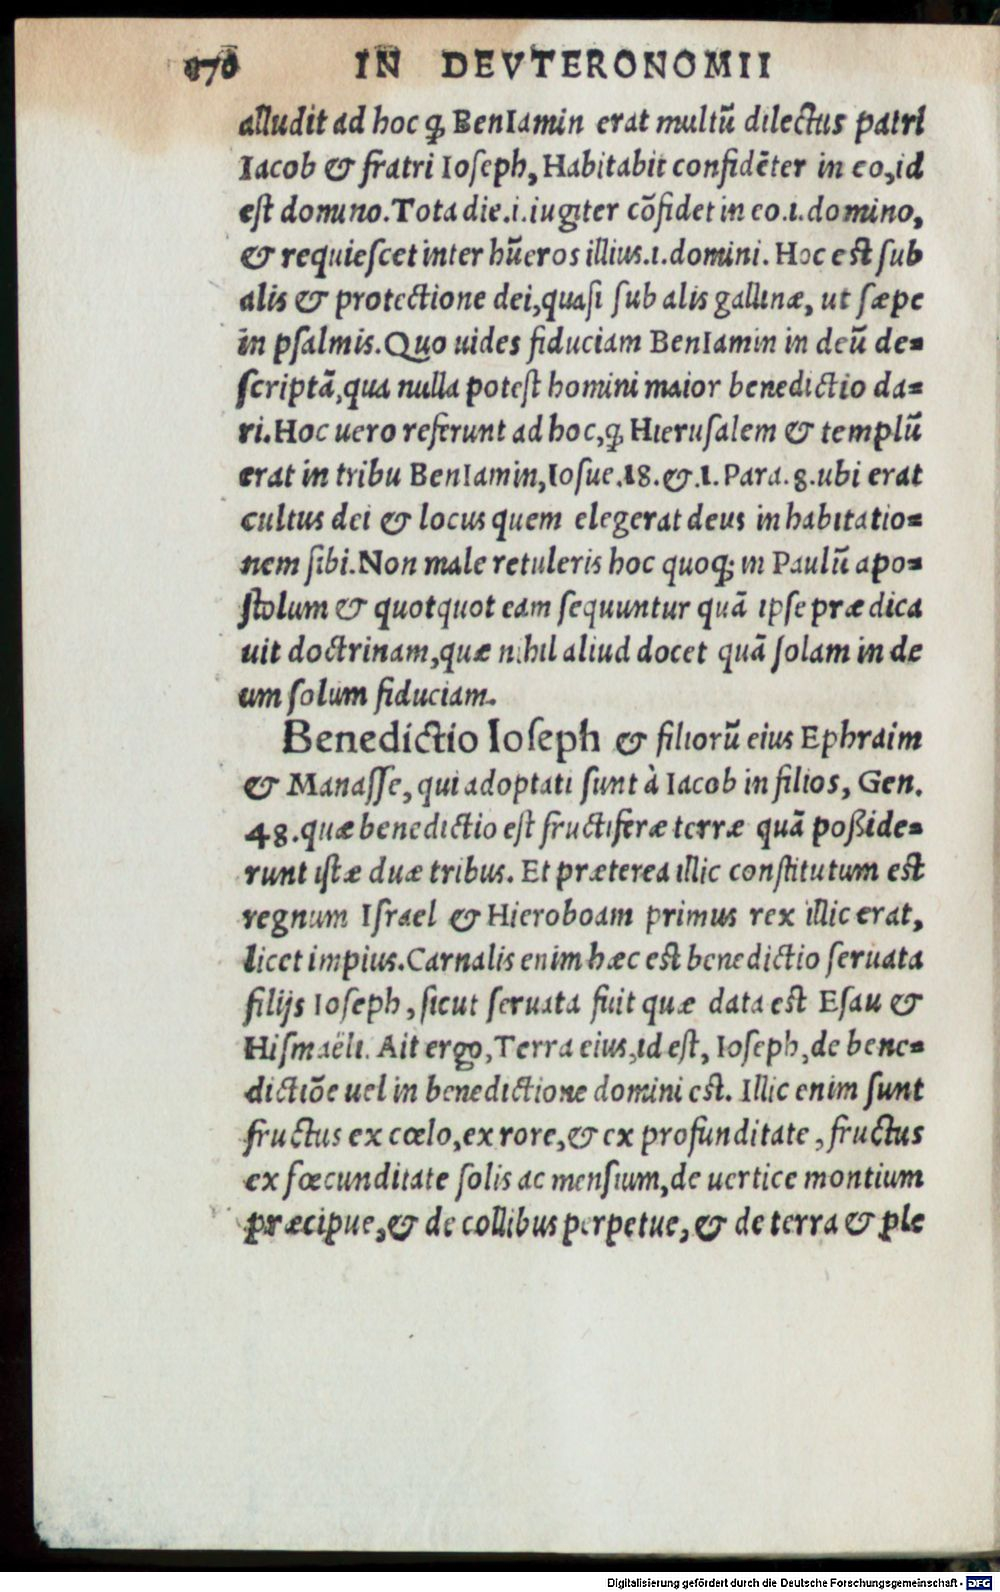 IN DEVTERONOMII
alludit ad hoc ꝙ BenIamin erat multū dilectus patri
Iacob & fratri Ioſeph, Habitabit confidēter in eo, id
eſt domino. Tota die .i. iugiter cōfidet in eo .i. domino,
& requieſcet inter hūeros illius .i. domini. Hoc eſt ſub
alis & protectione dei, quaſi ſub alis gallinæ, ut ſæpe
in pſalmis. Quo uides fiduciam BenIamin in deū de=
ſcriptā, qua nulla poteſt homini maior benedictio da=
ri. Hoc uero referunt ad hoc, ꝙ Hieruſalem & templū
erat in tribu BenIamin, Ioſue. 18. & .1. Para. 8. ubi erat
cultus dei & locus quem elegerat deus in habitatio=
nem ſibi. Non male retuleris hoc quoq; in Paulū apo=
ſtolum & quotquot eam ſequuntur quā ipſe prædica
uit doctrinam, quæ nihil aliud docet quā ſolam in de
um ſolum fiduciam.
Benedictio Ioſeph & filiorū eius Ephraim
& Manaſſe, qui adoptati ſunt à Iacob in filios, Gen.
48. quæ benedictio eſt fructiferæ terræ quā poßide=
runt iſtæ duæ tribus. Et præterea illic conſtitutum eſt
regnum Iſrael & Hieroboam primus rex illic erat,
licet impius. Carnalis enim hæc eſt benedictio ſeruata
filijs Ioſeph, ſicut ſeruata fuit quæ data eſt Eſau &
Hiſmaëli. Ait ergo, Terra eius, id eſt, Ioſeph, de bene=
dictiōe uel in benedictione domini eſt. Illic enim ſunt
fructus ex cœlo, ex rore, & ex profunditate, fructus
ex fœcunditate ſolis ac menſium, de uertice montium
præcipue, & de collibus perpetue, & de terra & ple
Digitalisierung gefördert durch die Deutsche Forschungsgemeinschaft - DFG